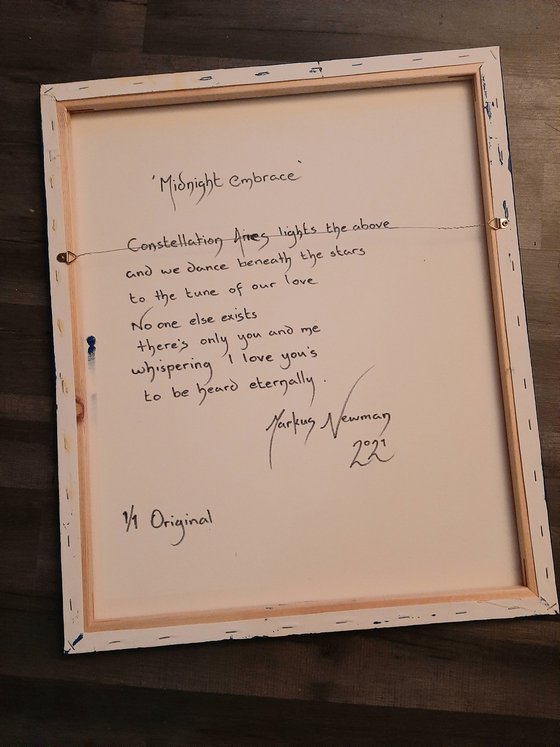 'Midnight embrace'
Constellation Aires lights the above
and we dance beneath the stars
to the tune of our love
No one else exists
there's only you and me
whispering I love you's
to be heard eternally.
Markus Newman
2021
1/1 Original